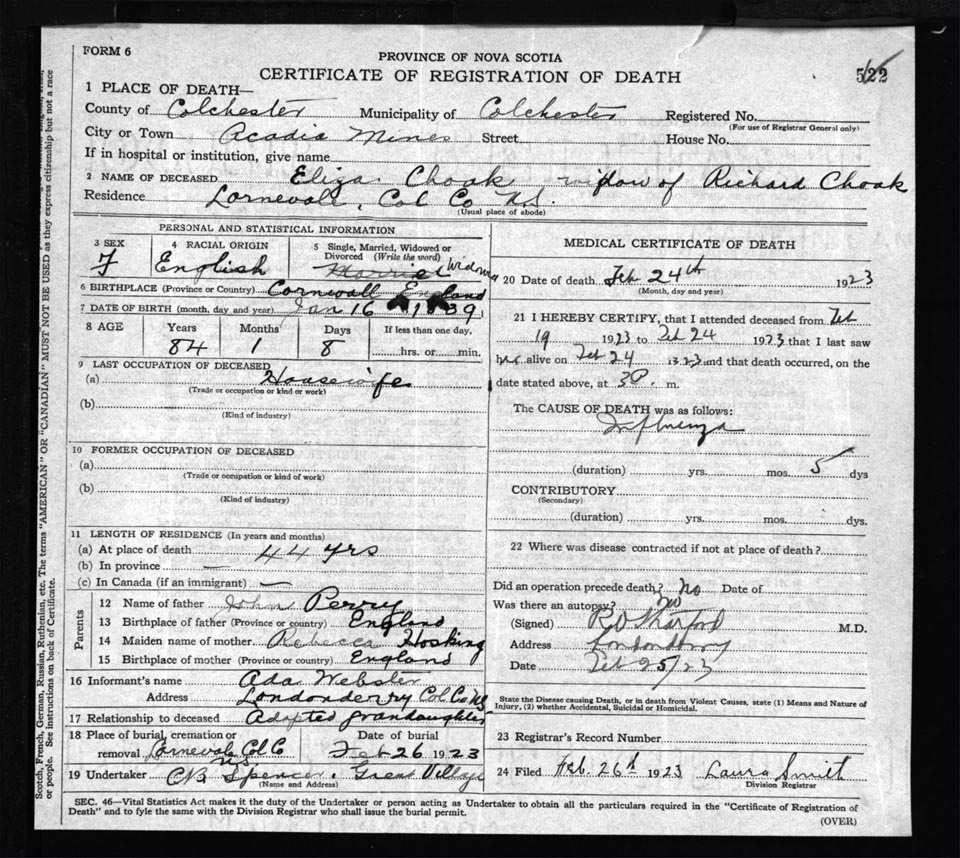 FORM 6
PROVINCE OF NOVA SCOTIA
CERTIFICATE OF REGISTRATION OF DEATH
522
1 PLACE OF DEATH—
County of Colchester Municipality of Colchester Registered No.
(For use of Registrar General only)
City or Town Acadia Mines Street House No.
If in hospital or institution, give name
2 NAME OF DECEASED Eliza Choak widow of Richard Choak
Residence Lornevale, Col Co N.S.
(Usual place of abode)
PERSONAL AND STATISTICAL INFORMATION
3 SEX F
4 RACIAL ORIGIN English
5 Single, Married, Widowed or Divorced (Write the word) Married Widow
6 BIRTHPLACE (Province or Country) Cornwall England
7 DATE OF BIRTH (month, day and year) Jan 16 1839
8 AGE Years Months Days If less than one day,
84 1 8 hrs. or min.
9 LAST OCCUPATION OF DECEASED
(a) Housewife
(Trade or occupation or kind or work)
(b)
(Kind of industry)
10 FORMER OCCUPATION OF DECEASED
(a)
(Trade or occupation or kind of work)
(b)
(Kind of industry)
11 LENGTH OF RESIDENCE (In years and months)
(a) At place of death 44 yrs
(b) In province —
(c) In Canada (if an immigrant) —
Parents
12 Name of father John Perry
13 Birthplace of father (Province or country) England
14 Maiden name of mother Rebecca Hosking
15 Birthplace of mother (Province or country) England
16 Informant's name Ada Webster
Address Londonderry Col Co NS
17 Relationship to deceased Adopted grandaughter
18 Place of burial, cremation or Date of burial
removal Lornevale Col C NS Feb 26 1923
19 Undertaker CB Spencer, Great Village
(Name and Address)
MEDICAL CERTIFICATE OF DEATH
20 Date of death Feb 24th 1923
(Month, day and year)
21 I HEREBY CERTIFY, that I attended deceased from Feb
19 1923 to Feb 24 1923 that I last saw
her alive on Feb 24 1923 and that death occurred, on the
date stated above, at 3 P. m.
The CAUSE OF DEATH was as follows:
Influenza
(duration) yrs. mos. 5 dys
CONTRIBUTORY
(Secondary)
(duration) yrs. mos. dys.
22 Where was disease contracted if not at place of death?
Did an operation precede death? no Date of
Was there an autopsy? no
(Signed) M.D.
Address Londonderry
Date Feb 25/23
State the Disease causing Death, or in death from Violent Causes, state (1) Means and Nature of
Injury, (2) whether Accidental, Suicidal or Homicidal.
23 Registrar's Record Number
24 Filed Feb. 26th 1923 Laura Smith
Division Registrar
SEC. 46—Vital Statistics Act makes it the duty of the Undertaker or person acting as Undertaker to obtain all the particulars required in the "Certificate of Registration of
Death" and to fyle the same with the Division Registrar who shall issue the burial permit.
(OVER)
Scotch, French, German, Russian, Ruthenian, etc. The terms "AMERICAN" OR "CANADIAN" MUST NOT BE USED as they express citizenship but not a race
or people. See instructions on back of Certificate.